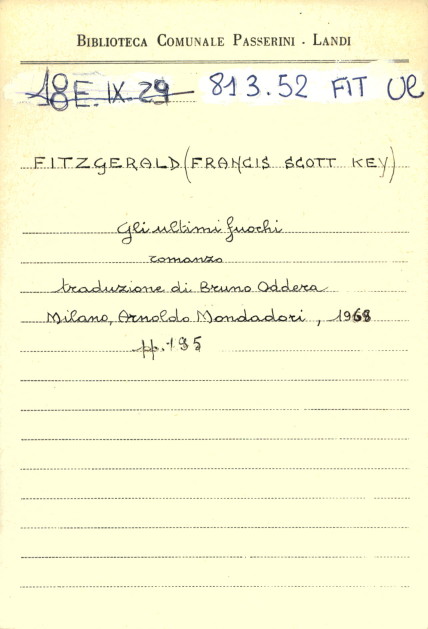 BIBLIOTECA COMUNALE PASSERINI - LANDI
18E. IX. 29 813.52 FIT
FITZGERALD (FRANCIS SCOTT KEY)
Gli ultimi fuochi
romanzo
traduzione di Bruno Oddera
Milano, Arnoldo Mondadori, 1968
pp. 195